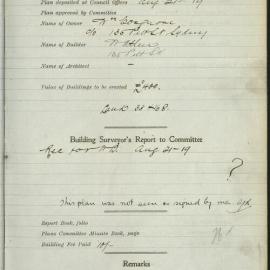 Plan deposited at Council Offices Aug 21-19
Plan approved by Committee
Name of Owner Wm Cosgrove
c/o 135 Pitt St Sydney
Name of Builder
135 Pitt St
Name of Architect -
Value of Buildings to be erected £400.
Building Surveyor's Report to Committee
Aug 21-19
?
This plan was not seen or signed by me
Report Book, folio
Plans Committee Minute Book, page
Building Fee Paid 10/-
Remarks